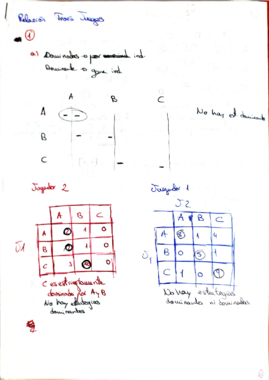 Relación Tema Juegos
①
a) Dominados o por ind.
Dominante o gana ind.
A B C
A - -
No hay est dominante
B -
C - -
Jugador 2
A B C
J1
A 2 1 0
B 2 1 0
C 3 0
C es estrictamente
dominada por A y B
No hay estrategias
dominantes
Jugador 1
J2
A B C
J1
A 1 4
B 0 3 1
C 1 0
No hay estrategias
dominantes ni dominadas